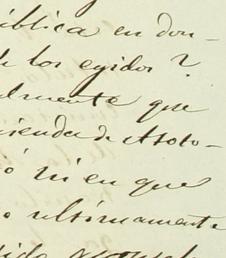 ública en don-
de los egidos?
almente que
cienda de Atoto-
ó ni en que
o ultimamente